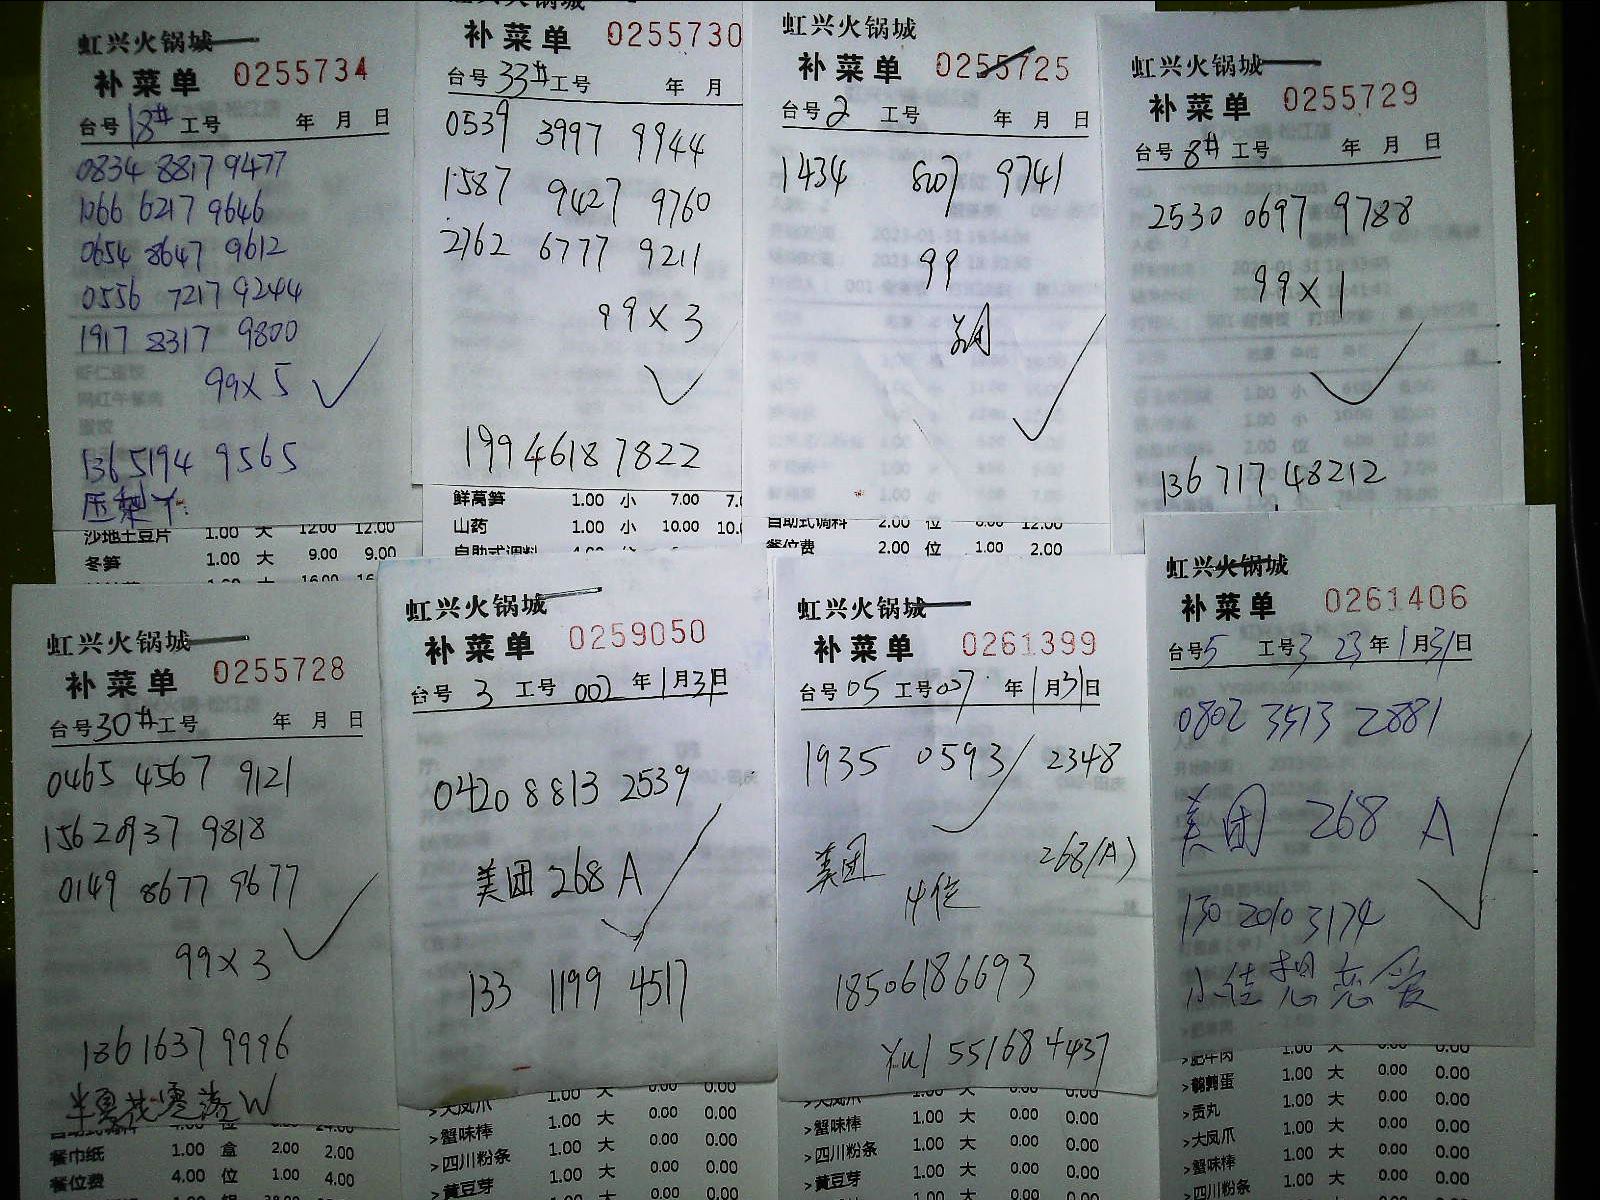 虹兴火锅城
补菜单 0255734
台号 18# 工号 年 月 日
0834 8817 9477
1066 6217 9646
0654 8647 9612
0556 7217 9244
1917 8317 9800
99×5
136 5194 9565
沙地土豆片 1.00 大 12.00 12.00
冬笋 1.00 大 9.00 9.00
补菜单 0255730
台号 33# 工号 年 月
0539 3997 9944
1587 9427 9760
2762 6777 9211
99×3
199 4618 7822
鲜莴笋 1.00 小 7.00
山药 1.00 小 10.00
自助式调料
虹兴火锅城
补菜单 0255725
台号 2 工号 年 月 日
1434 8207 9741
99
自助式调料 2.00 位 6.00 12.00
餐位费 2.00 位 1.00 2.00
虹兴火锅城
补菜单 0255729
台号 8# 工号 年 月 日
2530 0697 9788
99×1
136 7174 8212
虹兴火锅城
补菜单 0255728
台号 30# 工号 年 月 日
0465 4567 9121
1562 0937 9818
0149 8677 9677
99×3
1361637 9996
餐巾纸 1.00 盒 2.00 2.00
餐位费 4.00 位 1.00 4.00
虹兴火锅城
补菜单 0259050
台号 3 工号 002 年 1月31日
0420 8813 2539
美团 268 A
133 1199 4517
>大凤爪 1.00 大 0.00 0.00
>蟹味棒 1.00 大 0.00 0.00
>四川粉条 1.00 大 0.00 0.00
>黄豆芽 1.00 大 0.00 0.00
虹兴火锅城
补菜单 0261399
台号 05 工号 007 年 1月31日
1935 0593 2348
美团 268(A)
4位
18506186693
Yul 551684437
>大凤爪 1.00 大 0.00 0.00
>蟹味棒 1.00 大 0.00 0.00
>四川粉条 1.00 大 0.00 0.00
>黄豆芽 1.00 大 0.00 0.00
虹兴火锅城
补菜单 0261406
台号 5 工号 3 23年1月31日
0802 3513 2881
美团 268 A
130 2010 3174
小佳想恋爱
>肥牛肉 1.00 大 0.00 0.00
>鹌鹑蛋 1.00 大 0.00 0.00
>贡丸 1.00 大 0.00 0.00
>大凤爪 1.00 大 0.00 0.00
>蟹味棒 1.00 大 0.00 0.00
>四川粉条 1.00 大 0.00 0.00